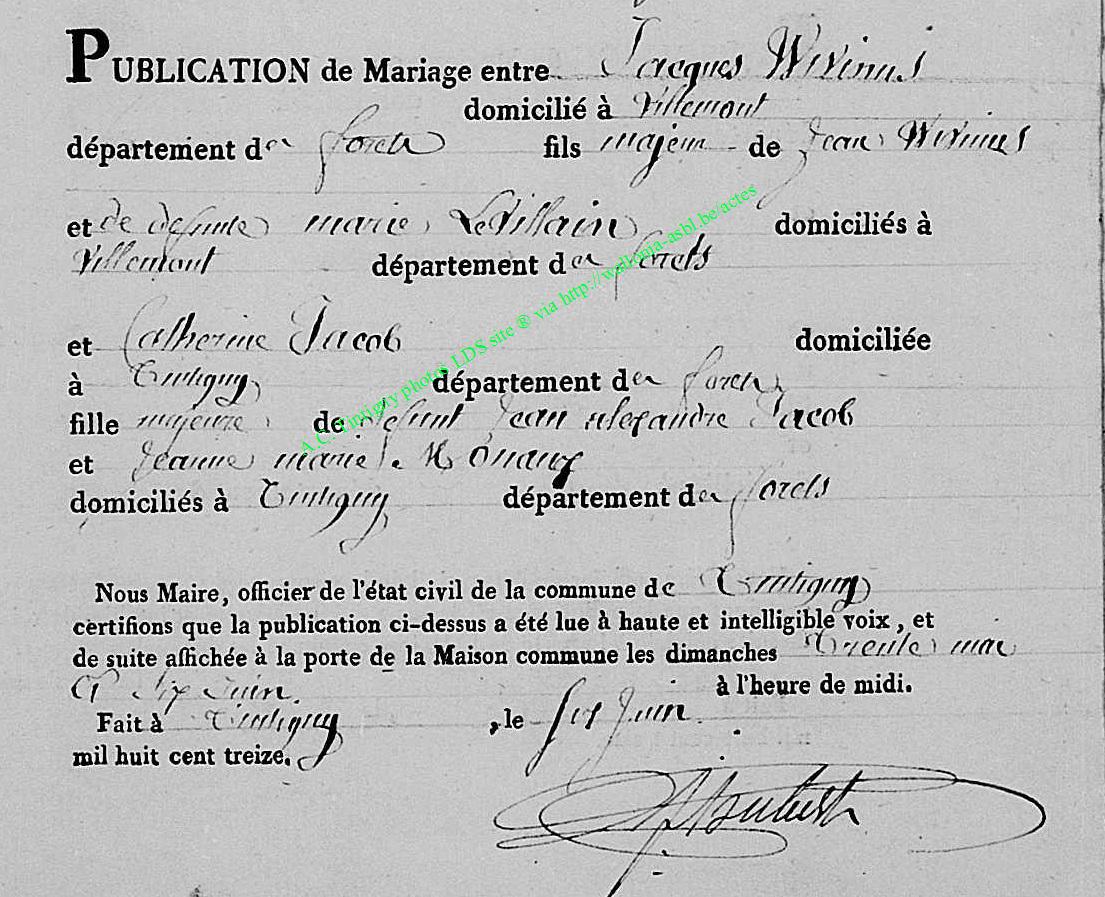 PUBLICATION de Mariage entre Jacques Wivinus
domicilié à Villemont
département des forets fils majeur de Jean Wivinus
et de defunte marie LeVillain domiciliés à
Villemont département des forets
et Catherine Jacob domiciliée
à Tintigny département des forets
fille majeure de defunt Jean alexandre Jacob
et Jeanne marie
domiciliés à Tintigny département des forets
Nous Maire, officier de l'état civil de la commune de Tintigny
certifions que la publication ci-dessus a été lue à haute et intelligible voix, et
de suite affichée à la porte de la Maison commune les dimanches Trente mai
et Six Juin à l'heure de midi.
Fait à Tintigny, le six Juin
mil huit cent treize.
A.C. Tintigny photos LDS site ® via http://wallonia-asbl.be/actes